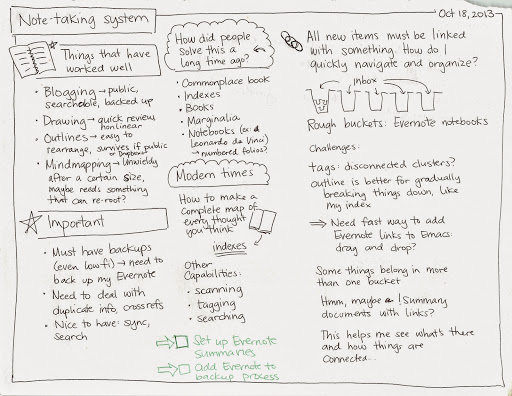 Note-taking system
Oct 18, 2013
Things that have
worked well
• Blogging → public,
searchable, backed up
• Drawing → quick review
nonlinear
• Outlines → easy to
rearrange, survives if public
or Dropboxed
• Mindmapping → Unwieldy
after a certain size,
maybe needs something
that can re-root?
Important
• Must have backups
(even low-fi) → need to
back up my Evernote
• Need to deal with
duplicate info, crossrefs
• Nice to have: sync,
search
How did people
solve this a
long time ago?
• Commonplace book
• Indexes
• Books
• Marginalia
• Notebooks (ex: Leonardo da Vinci)
→ numbered folios?
Modern times
How to make a
complete map of
every thought
you think
indexes
Other
Capabilities:
• scanning
• tagging
• searching
⇒ Set up Evernote
Summaries
⇒ add Evernote to
backup process
All new items must be linked
with something. How do I
quickly navigate and organize?
inbox
Rough buckets: Evernote notebooks
Challenges:
tags: disconnected clusters?
outline is better for gradually
breaking things down, like
my index
⇒ Need fast way to add
Evernote links to Emacs:
drag and drop?
Some things belong in more
than one bucket
Hmm, maybe !summary
documents with links?
This helps me see what's there
and how things are
connected...